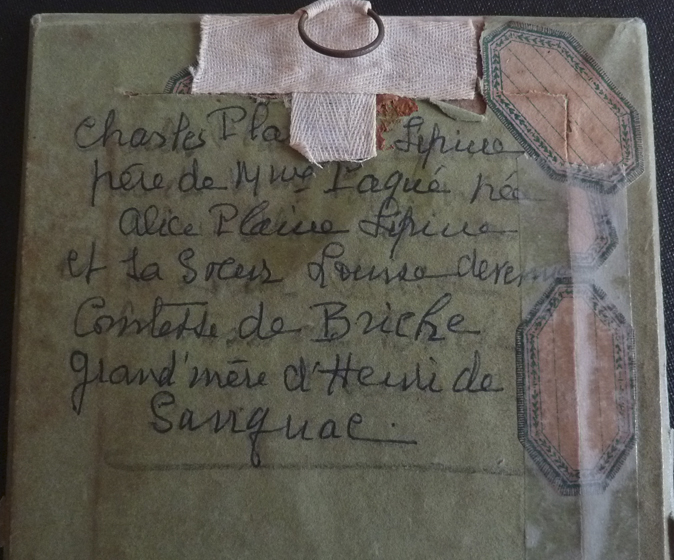 Charles Pla Lépine
père de Mme Paqué née
Alice Plaine Lépine
et sa Soeur Louise devenue
Comtesse de Briche
grand'mère d'Henri de
Sanguac.